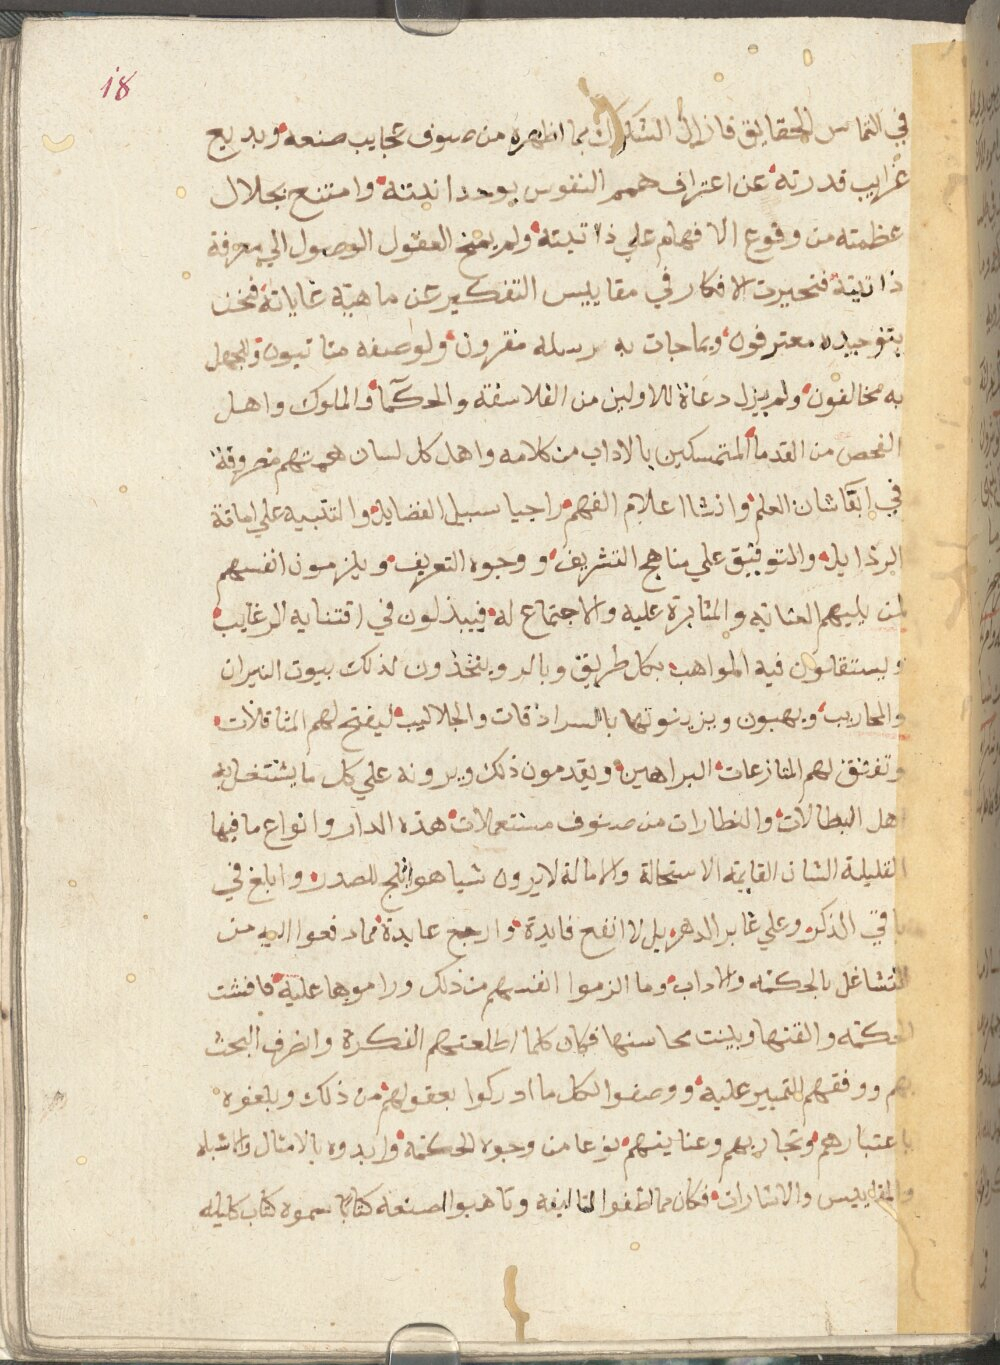 18
في التماس الحقايق فازال الشكوك بما اظهره من صنوف عجايب صنعه وبديع
غرايب قدرته عن اعتراف همم النفوس بوحدانيته وامتنع بجلال
عظمته من وقوع الافهام علي ذاتيته ولم يمنح العقول الوصول الي معرفة
ذاتيته فتحيرت الافكار في مقاييس التفكير عن ماهية غاياته فنحن
بتوحيده معترفون وبما جات به رسله مقرون ولوصفه متاتيون وللجهل
به مخالفون ولم يزل دعاة الاولين من الفلاسفة والحكما والملوك واهل
الفحص من القدما المتمسكين بالاداب من كلامه واهل كل لسان همتهم مصروفة
في ابقا شان العلم وانشا اعلام الفهم واحيا سبيل الفضايل والتنبيه علي اماتة
الرذايل والتوفيق علي مناهج التشريف ووجوه التعريف ويلزمون انفسهم
لمن يليهم العنايه والمثابرة عليه والاجتماع له فيبذلون في اقتنايه الرغايب
ويستقلون فيه المواهب بكل طريق وبالد ويتخذون لذلك بيوت النيران
والمحاريب ويهبون ويزينونها بالسرادقات والجلاليب ليفتح لهم المثاقلات
وتفتق لهم المنازعات البراهين ويقدمون ذلك ويرونه علي كل ما يشتغل به
اهل البطالات والخطارات من صنوف مستعملات هذه الدار وانواع ما فيها
القليلة الشان القايمه الاستحالة والامالة لا يرون شيا هو اثلج للصدر وابلغ في
باقي الذكر وعلي غابر الدهر بل لا انفع فايدة وارجع عايدة مما دفعوا اليه من
التشاغل بالحكمه والاداب وما الزموا انفسهم من ذلك وراموها عليه فافشت
الحكمه والقتها وبينت محاسنها فكان كلما اطلعتهم الفكرة واظرف البحث
بهم ووفقهم التمييز عليه ووصفوا لكل ما ادركوا بعقولهم من ذلك وبلغوه
باعتبارهم وتجاربهم وعنايتهم نوعا من وجوه الحكمه وابدوه بالامثال والاشباه
والمقاييس والاشارات فكان مما لطفوا لتاليفه وتاهبوا لصنعه كتابا سموه كتاب كليله